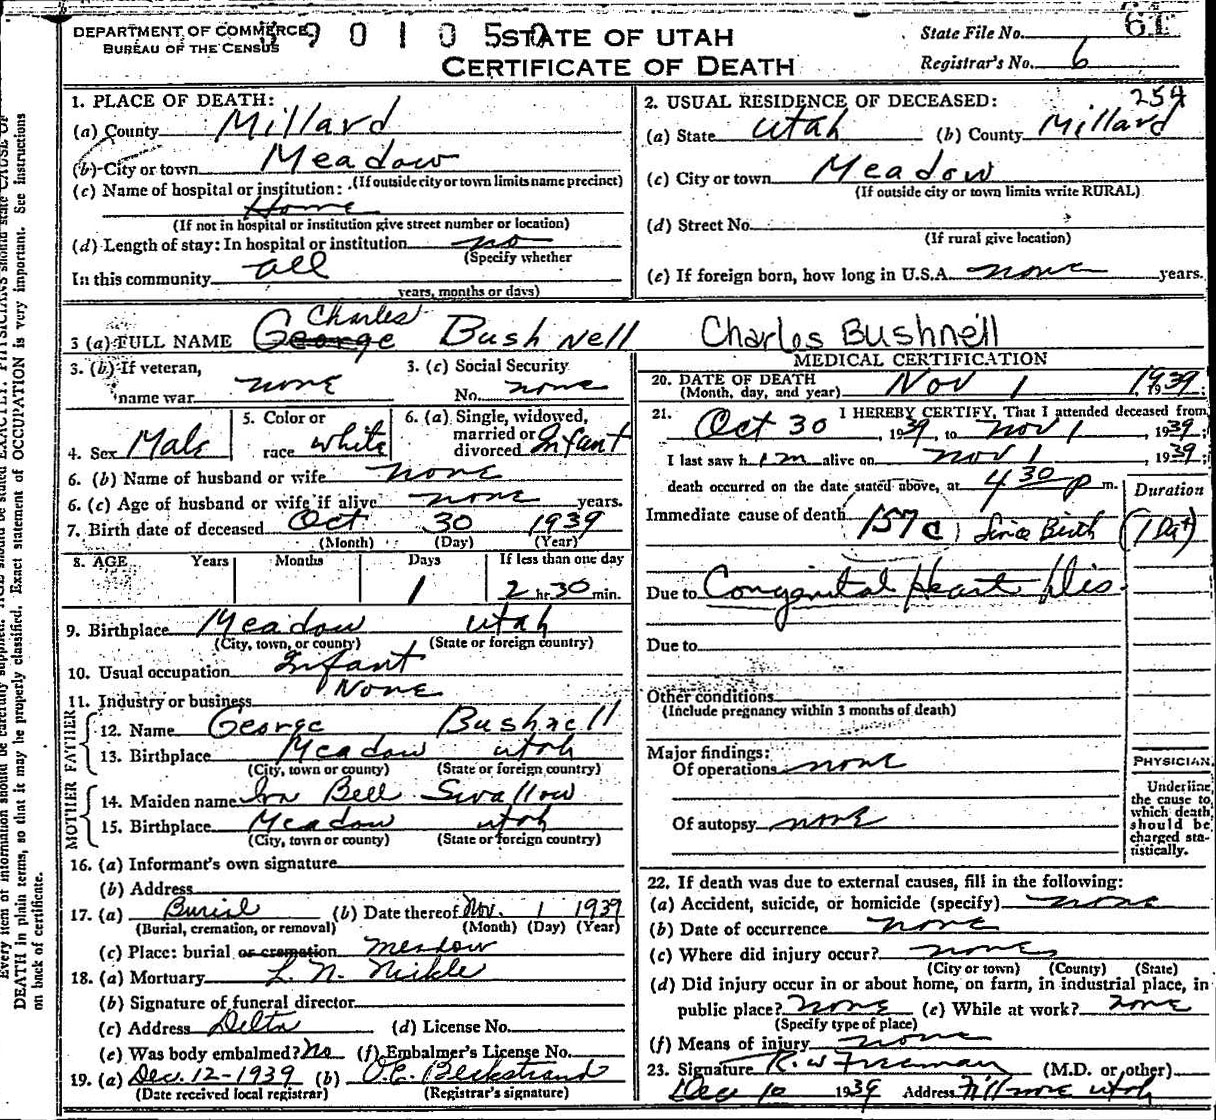 DEPARTMENT OF COMMERCE
BUREAU OF THE CENSUS
9 0 1 0 5 0
STATE OF UTAH
CERTIFICATE OF DEATH
State File No. 61
Registrar's No. 6
1. PLACE OF DEATH:
(a) County Millard
(b) City or town Meadow
(If outside city or town limits name precinct)
(c) Name of hospital or institution:
Home
(If not in hospital or institution give street number or location)
(d) Length of stay: In hospital or institution no
(Specify whether
In this community all
years, months or days)
2. USUAL RESIDENCE OF DECEASED: 254
(a) State Utah (b) County Millard
(c) City or town Meadow
(If outside city or town limits write RURAL)
(d) Street No.
(If rural give location)
(e) If foreign born, how long in U.S.A. none years.
Charles
3 (a) FULL NAME George Bushnell Charles Bushnell
3. (b) If veteran,
name war none
3. (c) Social Security
No. none
4. Sex Male
5. Color or
race white
6. (a) Single, widowed,
married or
divorced Infant
6. (b) Name of husband or wife none
6. (c) Age of husband or wife if alive none years.
7. Birth date of deceased Oct 30 1939
(Month) (Day) (Year)
8. AGE Years Months Days If less than one day
1 2 hr. 30 min.
9. Birthplace Meadow Utah
(City, town, or county) (State or foreign country)
10. Usual occupation Infant
11. Industry or business None
FATHER
12. Name George Bushnell
13. Birthplace Meadow Utah
(City, town or county) (State or foreign country)
MOTHER
14. Maiden name Bell Swallow
15. Birthplace Meadow Utah
(City, town or county) (State or foreign country)
16. (a) Informant's own signature
(b) Address
17. (a) Burial (b) Date thereof Nov. 1 1939
(Burial, cremation, or removal) (Month) (Day) (Year)
(c) Place: burial or cremation Meadow
18. (a) Mortuary L. N. Nickle
(b) Signature of funeral director
(c) Address Delta (d) License No.
(e) Was body embalmed? No (f) Embalmer's License No.
19. (a) Dec. 12-1939 (b) O.C. Beckstrand
(Date received local registrar) (Registrar's signature)
MEDICAL CERTIFICATION
20. DATE OF DEATH
(Month, day, and year) Nov 1, 1939;
21. I HEREBY CERTIFY, That I attended deceased from
Oct 30, 1939, to Nov 1, 1939;
I last saw him alive on Nov 1, 1939;
death occurred on the date stated above, at 4 30 p m.
Duration
Immediate cause of death 157c Since Birth (1 Da)
Due to Congenital Heart Dis.
Due to
Other conditions
(Include pregnancy within 3 months of death)
Major findings:
Of operations none
Of autopsy none
PHYSICIAN
Underline
the cause to
which death
should be
charged sta-
tistically.
22. If death was due to external causes, fill in the following:
(a) Accident, suicide, or homicide (specify) none
(b) Date of occurrence none
(c) Where did injury occur? none
(City or town) (County) (State)
(d) Did injury occur in or about home, on farm, in industrial place, in
public place? none (e) While at work? none
(Specify type of place)
(f) Means of injury none
23. Signature R. W Freeman (M.D. or other)
Dec 10 1939 Address Fillmore Utah
Every item of information should be carefully supplied. AGE should be stated EXACTLY. PHYSICIANS should state CAUSE OF
DEATH in plain terms, so that it may be properly classified. Exact statement of OCCUPATION is very important. See instructions
on back of certificate.